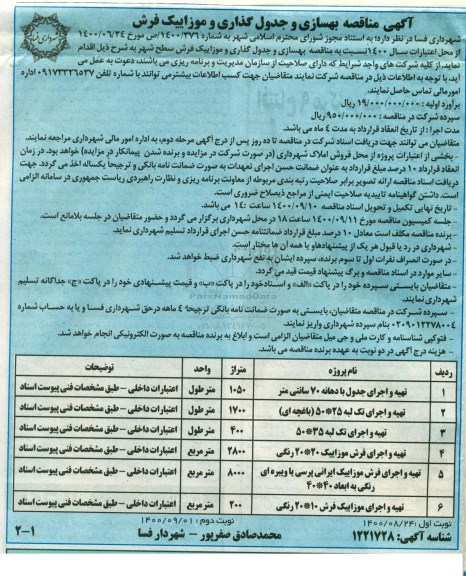 آگهی مناقصه بهسازی و جدول گذاری و موزاییک فرش
شهرداری فسا
شهرداری فسا در نظر دارد؛ به استناد مجوز شورای محترم اسلامی شهر به شماره ۱۴۰۰/۳۷۶/ص مورخ ۱۴۰۰/۰۶/۲۴
از محل اعتبارات سال ۱۴۰۰نسبت به مناقصه بهسازی و جدول گذاری و موزاییک فرش سطح شهر به شرح ذیل اقدام
نماید. از کلیه شرکت های واجد شرایط که دارای صلاحیت از سازمان مدیریت و برنامه ریزی می باشند، دعوت به عمل می
آید، با توجه به اطلاعات ذیل در مناقصه شرکت نمایند متقاضیان جهت کسب اطلاعات بیشترمی توانند با شماره تلفن ۰۹۱۷۳۳۳۶۵۳۷ اداره
امورمالی تماس حاصل نمایند.
برآورد اولیه: ۱۹/۰۰۰/۰۰۰/۰۰۰ ریال
سپرده شرکت در مناقصه : ۹۵۰/۰۰۰/۰۰۰ریال
مدت اجرا : از تاریخ انعقاد قرارداد به مدت ۴ ماه می باشد.
متقاضیان می توانند جهت دریافت اسناد شرکت در مناقصه تا ده روز پس از درج آگهی مرحله دوم، به اداره امور مالی شهرداری مراجعه نمایند.
- بخشی از اعتبارات پروژه از محل فروش املاک شهرداری (در صورت شرکت در مزایده و برنده شدن پیمانکار در مزایده) خواهد بود. در زمان
انعقاد قرارداد ۱۰ درصد مبلغ قرارداد به عنوان ضمانت حسن اجرای تعهدات به صورت ضمانت نامه بانکی و ترجیحاً یکساله اخذ می گردد. جهت
دریافت اسناد مناقصه ارائه تصویر برابر صلاحیت رتبه بندی مربوطه از معاونت برنامه ریزی و نظارت راهبردی ریاست جمهوری در سامانه الزامی
است. داشتن گواهینامه تاییدیه صلاحیت ایمنی از مراجع ذیصلاح ضروری است.
- تاریخ نهایی تکمیل و تحویل اسناد مناقصه ۱۴۰۰/۰۹/۱۰ ساعت ۱۴:۰۰ می باشد.
- جلسه کمیسیون مناقصه مورخ ۱۴۰۰/۰۹/۱۱ ساعت ۱۸ در محل شهرداری برگزار می گردد و حضور متقاضیان در جلسه بلامانع است.
- برنده مناقصه مکلف است معادل ۱۰ درصد مبلغ قرارداد ضمانتنامه حسن اجرای قرارداد تسلیم شهرداری نماید.
- شهرداری در رد یا قبول هر یک از پیشنهادهاو یا همه آن ها مختار است.
- در صورت انصراف نفرات اول تا سوم برنده، سپرده ایشان به نفع شهرداری ضبط خواهد شد.
- سایر موارد در اسناد مناقصه و برگ پیشنهاد قیمت قید می گردد.
- متقاضیان بایستی سپرده خود را در پاکت «الف» و اسنادخود را در پاکت «ب» و قیمت پیشنهادی خود را در پاکت «ج» جداگانه تسلیم
شهرداری نمایند.
- سپرده شرکت در مناقصه متقاضیان، بایستی به صورت ضمانت نامه بانکی ترجیحا" ۴ ماهه درحق شهرداری فسا و یا به حساب شماره
۰۲۰۹۰۱۲۲۷۸۰۰۴ بنام سپرده شهرداری واریز نمایند.
- فتوکپی شناسنامه و کارت ملی و جی میل متقاضیان الزامی است و ابلاغ به برنده مناقصه به صورت الکترونیکی انجام خواهد شد.
- هزینه درج آگهی در دو نوبت به عهده برنده مناقصه می باشد.
ردیف نام پروژه متراژ واحد توضیحات
۱ تهیه و اجرای جدول با دهانه ۷۰ سانتی متر ۱۰۵۰ متر طول اعتبارات داخلی - طبق مشخصات فنی پیوست اسناد
۲ تهیه و اجرای تک لبه ۲۵*۵۰ (باغچه ای) ۱۷۰۰ متر طول اعتبارات داخلی - طبق مشخصات فنی پیوست اسناد
۳ تهیه و اجرای تک لبه ۳۵*۵۰ ۴۰۰ متر طول اعتبارات داخلی - طبق مشخصات فنی پیوست اسناد
۴ تهیه و اجرای فرش موزاییک ۲۰*۲۰ رنگی ۲۸۰۰ متر مربع اعتبارات داخلی - طبق مشخصات فنی پیوست اسناد
۵ تهیه و اجرای فرش موزاییک ایرانی پرسی یا ویبره ای رنگی به ابعاد ۴۰*۴۰ ۸۰۰۰ متر مربع اعتبارات داخلی - طبق مشخصات فنی پیوست اسناد
۶ تهیه و اجرای موزاییک فرش ۱۰*۲۰ رنگی ۲۰۰ متر مربع اعتبارات داخلی - طبق مشخصات فنی پیوست اسناد
نوبت اول: ۱۴۰۰/۰۸/۲۴ نوبت دوم : ۱۴۰۰/۰۹/۰۱
شناسه آگهی: ۱۲۲۱۷۲۸ محمدصادق صفرپور - شهردار فسا ۲-۱